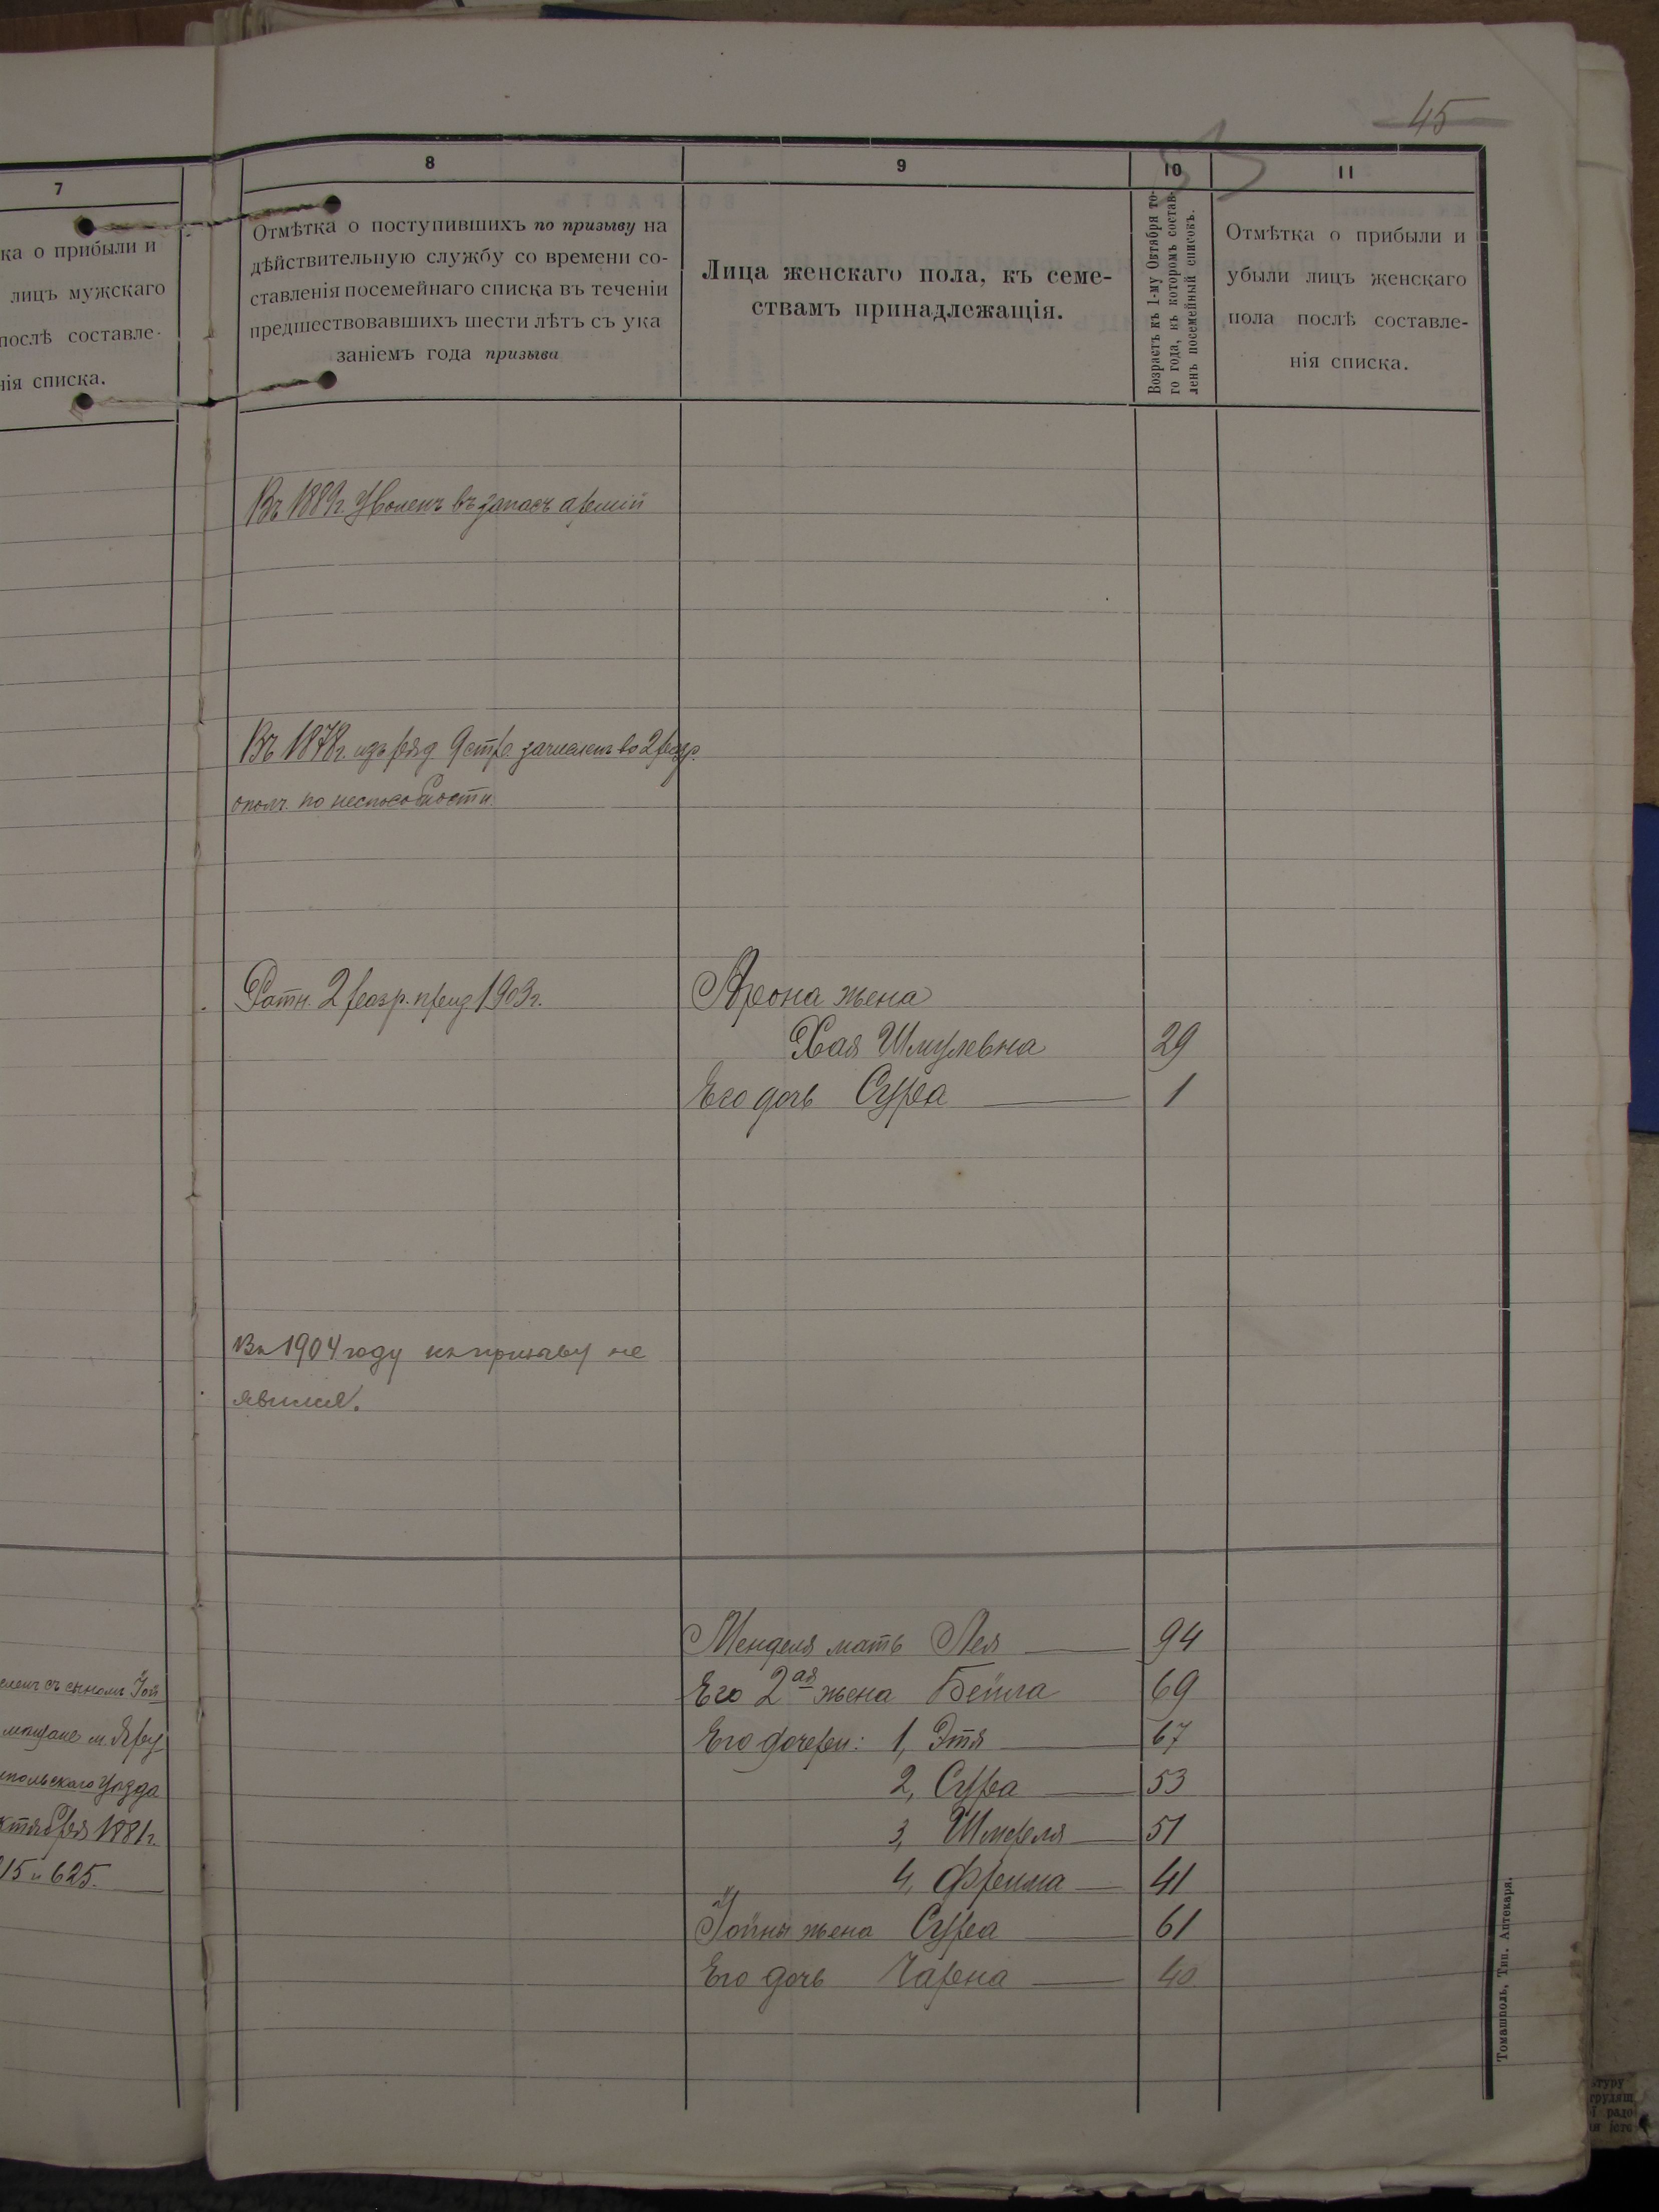 45
7
ка о прибыли и
лицъ мужскаго
послѣ составле-
нія списка.
еленъ съ сыномъ Іой
мѣщане м. Яру
польскаго уѣзда
ктября 1881г.
15 и 625.
8
Отмѣтка о поступившихъ по призыву на
дѣйствительную службу со времени со-
ставленія посемейнаго списка въ теченіи
предшествовавшихъ шести лѣтъ съ ука
заніемъ года призыва
Въ 1889г. уволенъ въ запасъ армій
Въ 1878г. изъ 9 зачисленъ во 2 разр.
ополч. по неспособности.
Ратн. 2 разр. приз 1903г.
Въ 1904 году къ призыву не
явился.
9
Лица женскаго пола, къ семе-
ствамъ принадлежащія.
10
Возрастъ къ 1-му Октября то-
го года, въ которомъ состав-
ленъ посемейный списокъ.
11
Отмѣтка о прибыли и
убыли лицъ женскаго
пола послѣ составле-
нія списка.
Арона жена
Хая Шмулевна 29
Его дочь Сура 1
Менделя мать Лея 94
Его 2ая жена Бейла 69
Его дочери: 1, Этя 67
2, Сура 53
3, 51
4, Фрима 41
Іойны жена Сура 61
Его дочь Чарна 40
Томашполь, Тип. Аптекаря.